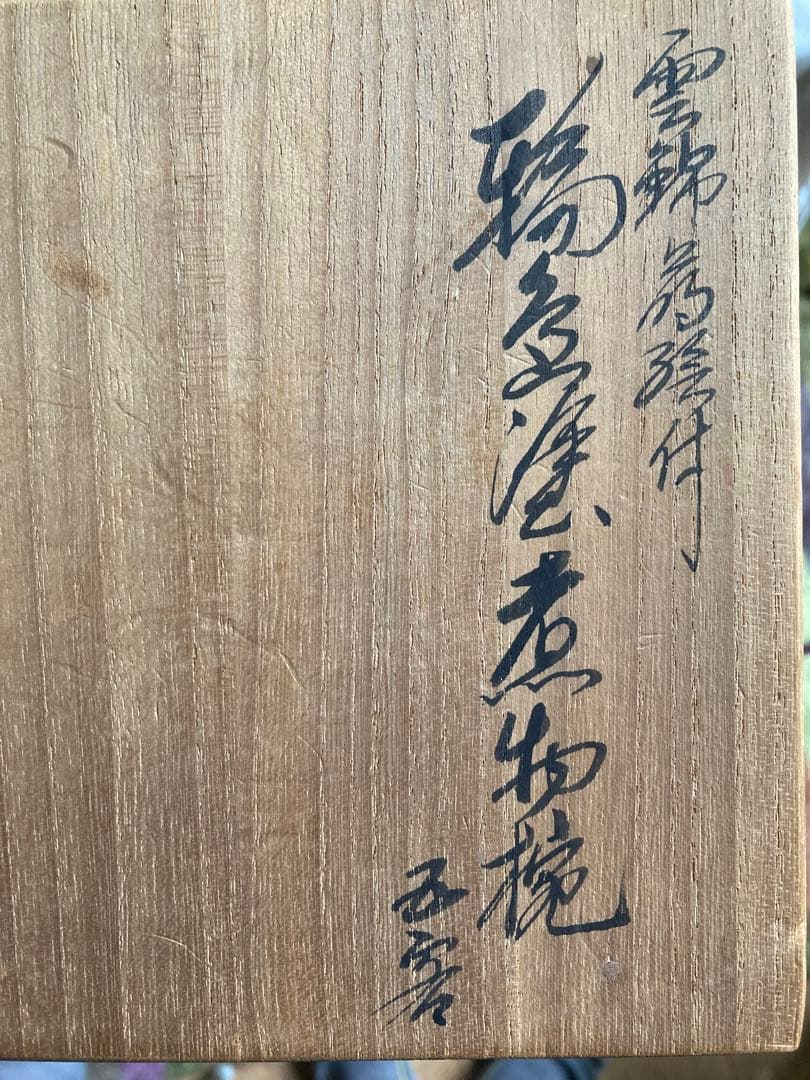 雲錦蒔絵付
輪島塗煮物椀
五客